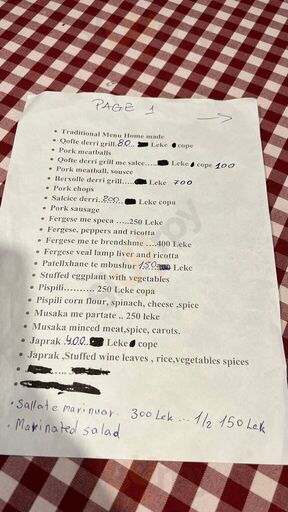 PAGE 1
Traditional Menu Home made
Qofte derri grill.80.. Leke cope
Pork meatballs
Qofte derri grill me salce..... Leke cope 100
Pork meatball, sousce
Berxolle derri grill..... Leke 700
Pork chops
Salcice derri. 200.. Leke copa
Pork sausage
Fergese me speca .....250 Leke
Fergese, peppers and ricotta
Fergese me te brendshme ....400 Leke
Fergese veal lamp liver and ricotta
Patellxhane te mbushur.150. Leke
Stuffed eggplant with vegetables
Pispili.......... 250 Leke copa
Pispili corn flour, spinach, cheese ,spice
Musaka me partate .. 250 leke
Musaka minced meat,spice, carots.
Japrak .400.. Leke cope
Japrak ,Stuffed wine leaves , rice,vegetables spices
Sallate marinuar. 300 Lek ... 1/2 150 Lek
Marinated salad